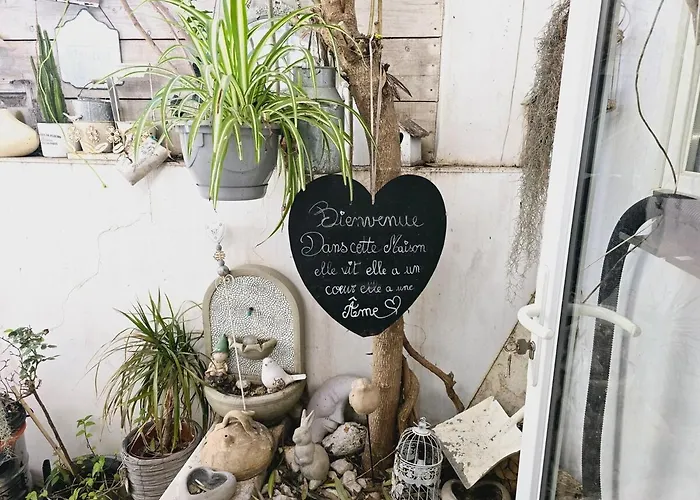 Bienvenue
Dans cette Maison
elle vit elle a un
cœur elle a une
Âme